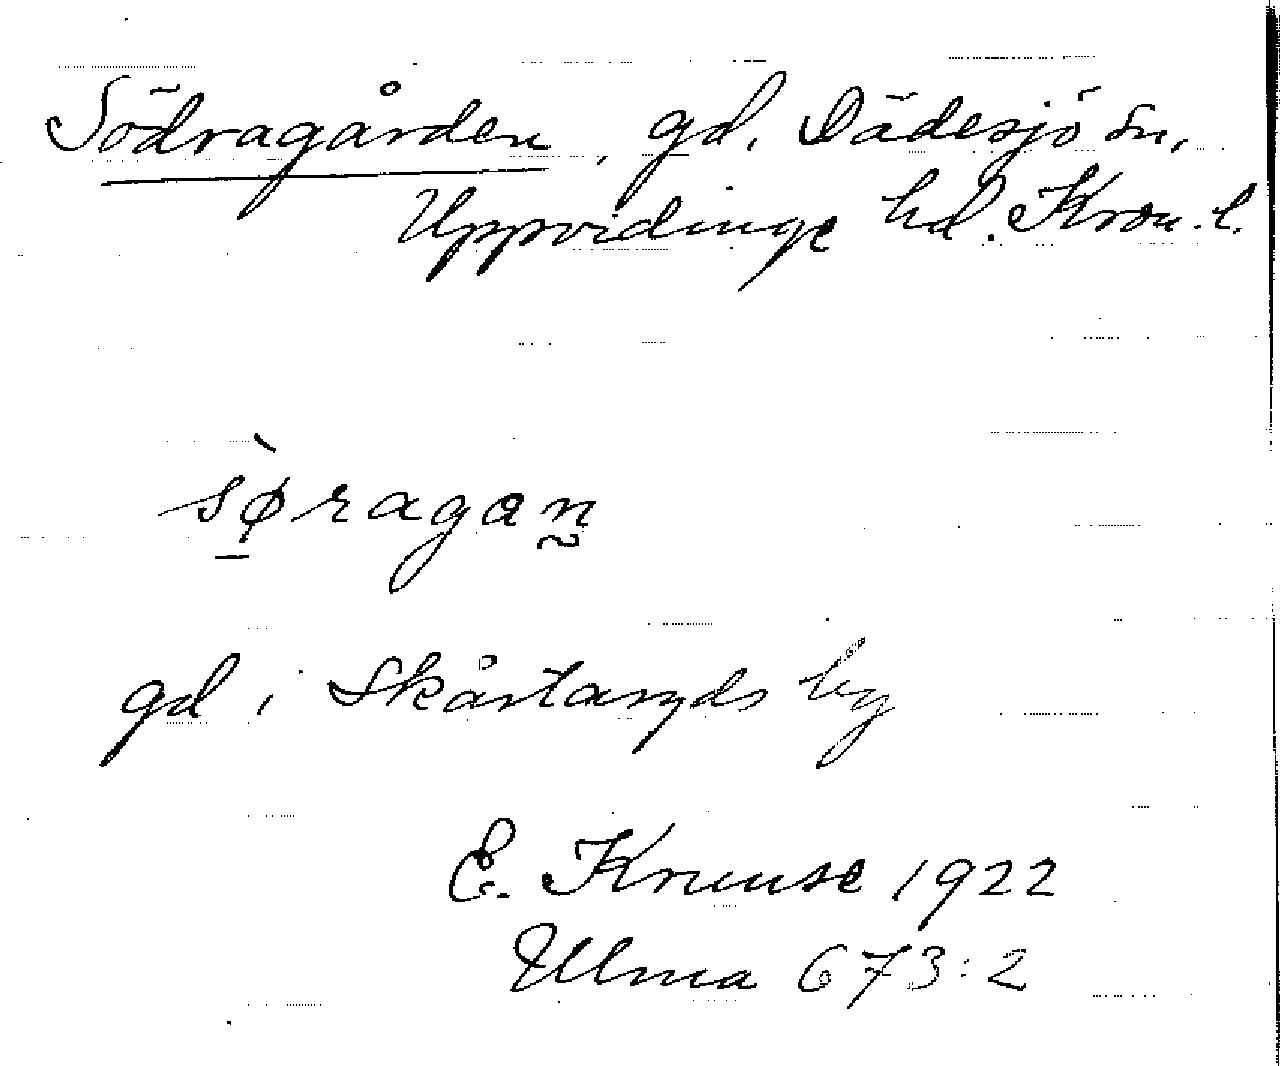 Södragården, gd, Dädesjö sn,
Uppvidinge hd. Kron. l.
sø̀ragan
gd i Skårtaryds by
E. Kruuse 1922
Ulma 673:2